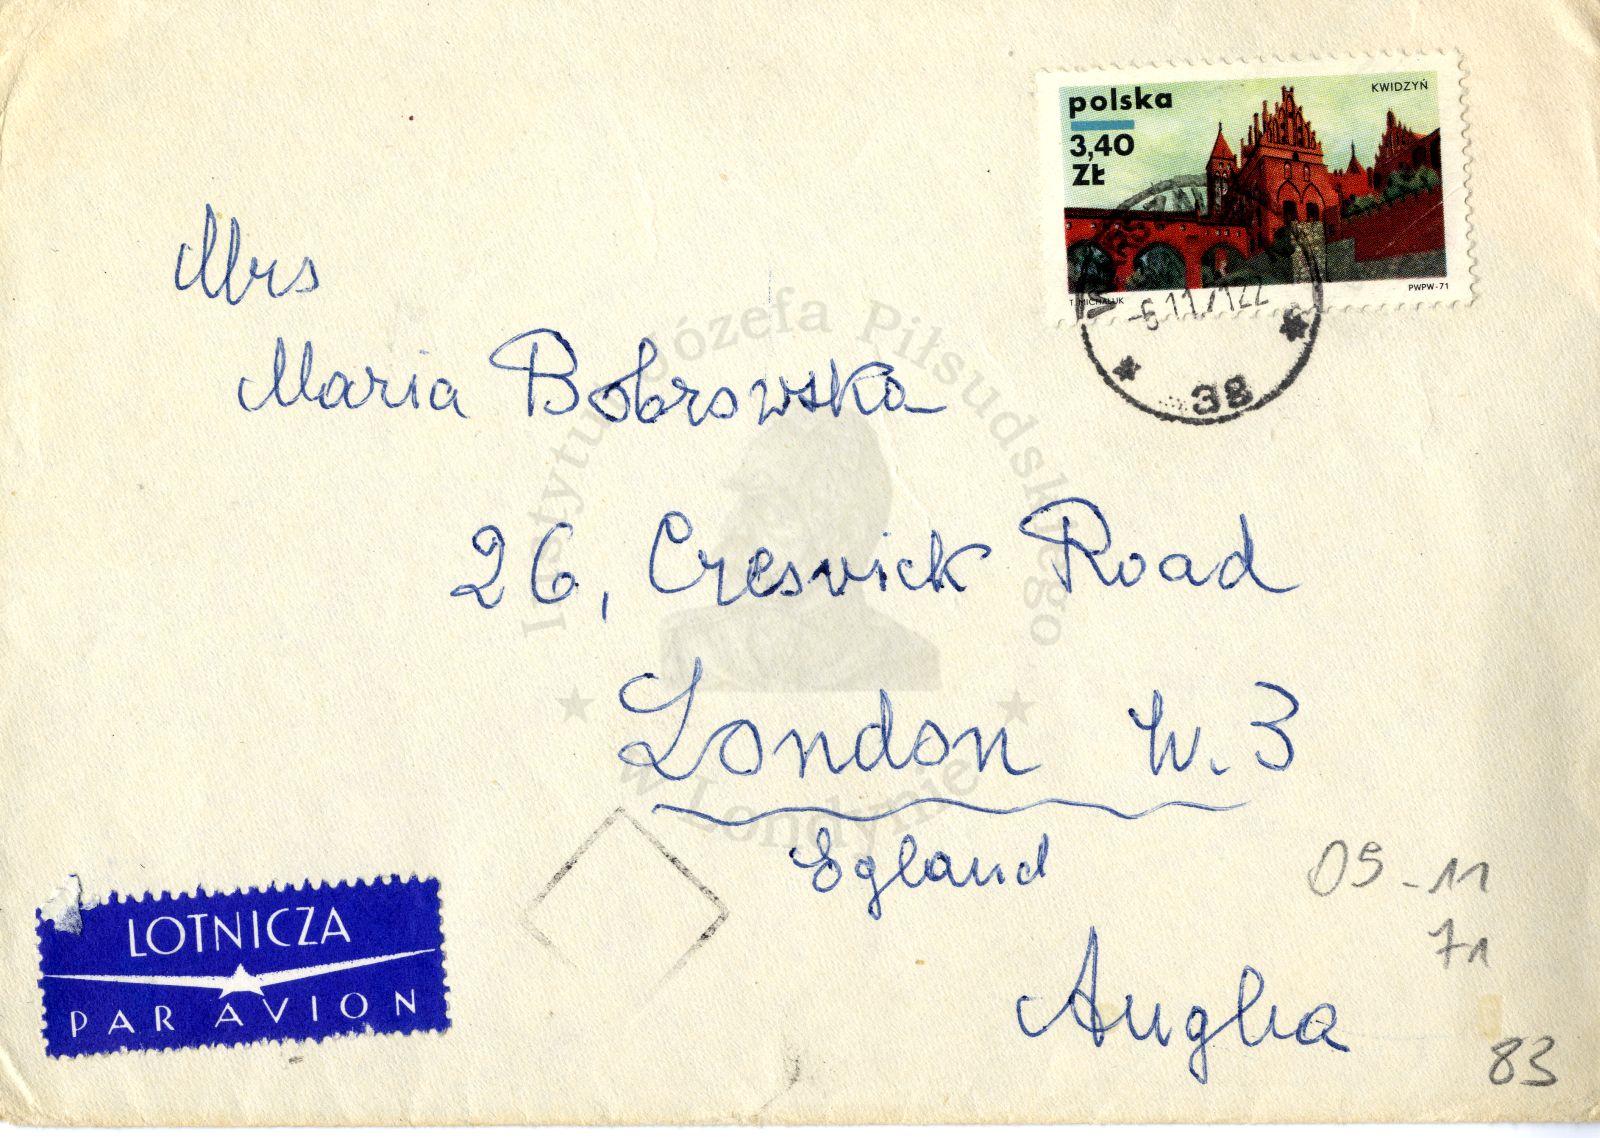 polska
KWIDZYŃ
3,40
ZŁ
T. MICHALUK
PWPW-71
-6.11.71 22
38
Mrs
Maria Bobrowska
26, Creswick Road
London W. 3
Egland
Anglia
LOTNICZA
PAR AVION
09-11
71
83
Instytut Józefa Piłsudskiego
w Londynie